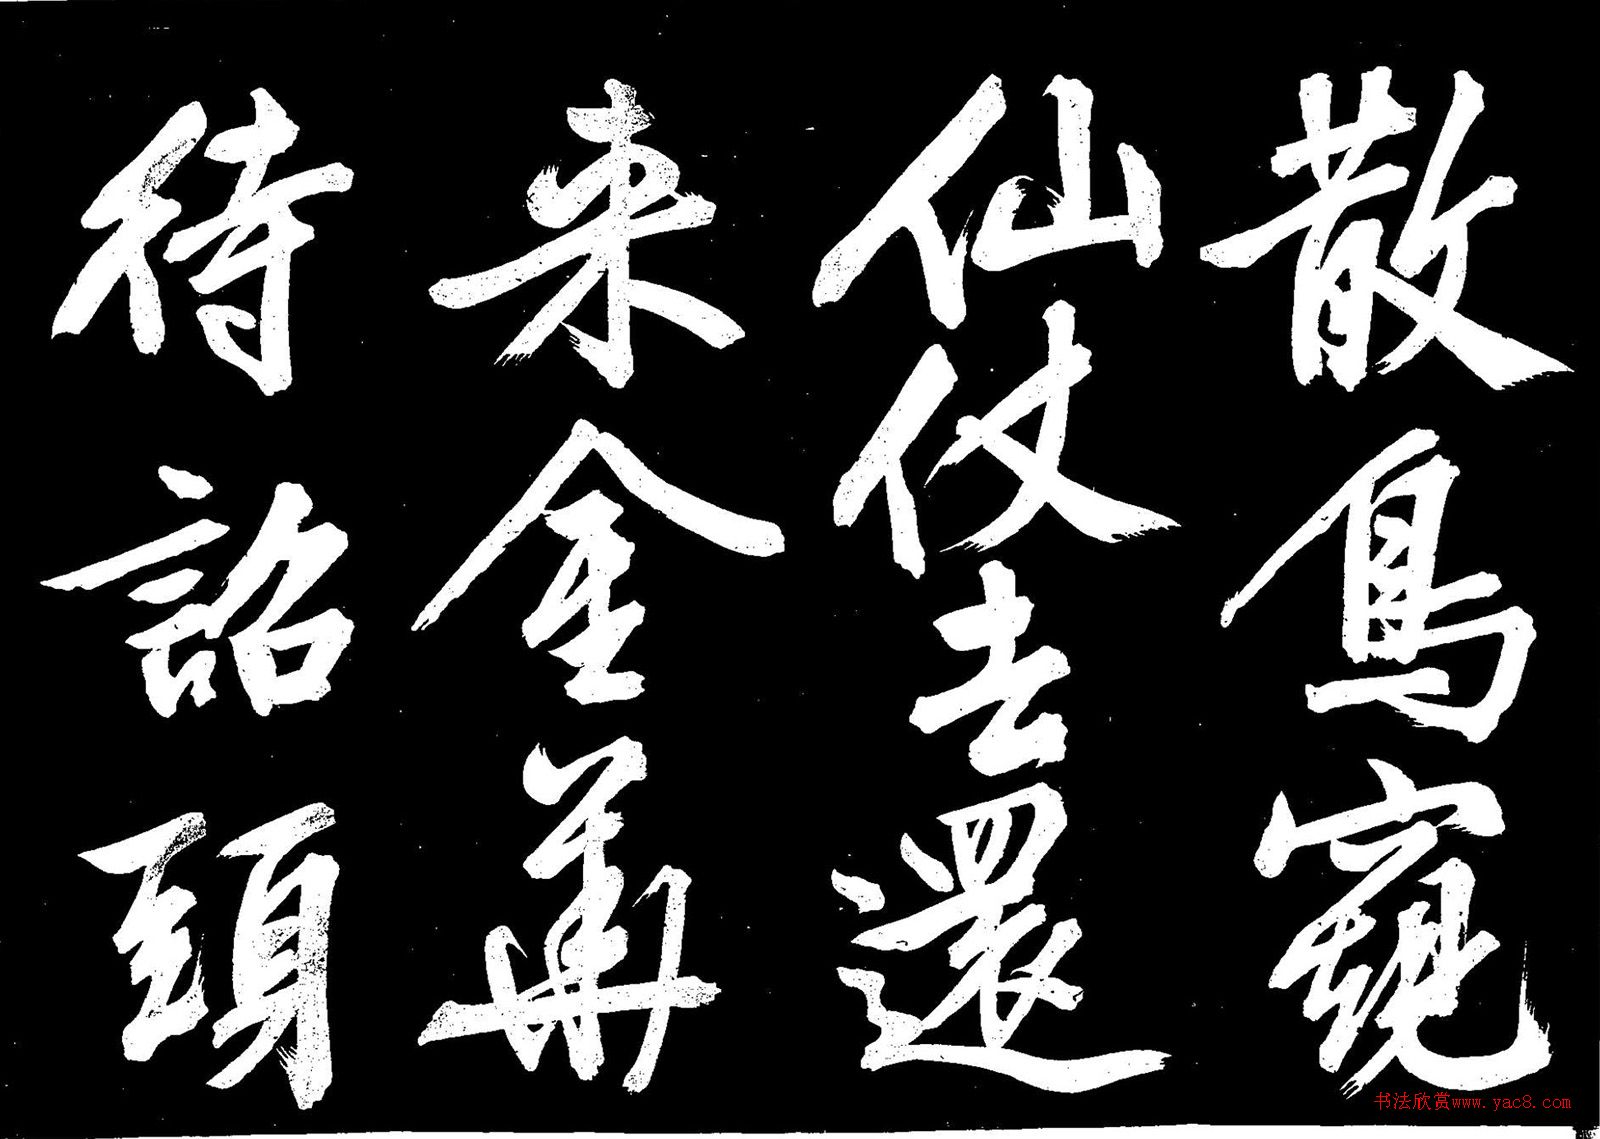 散鳥窺
仙仗去還
来金華
待詔頭
书法欣赏www.yac8.com